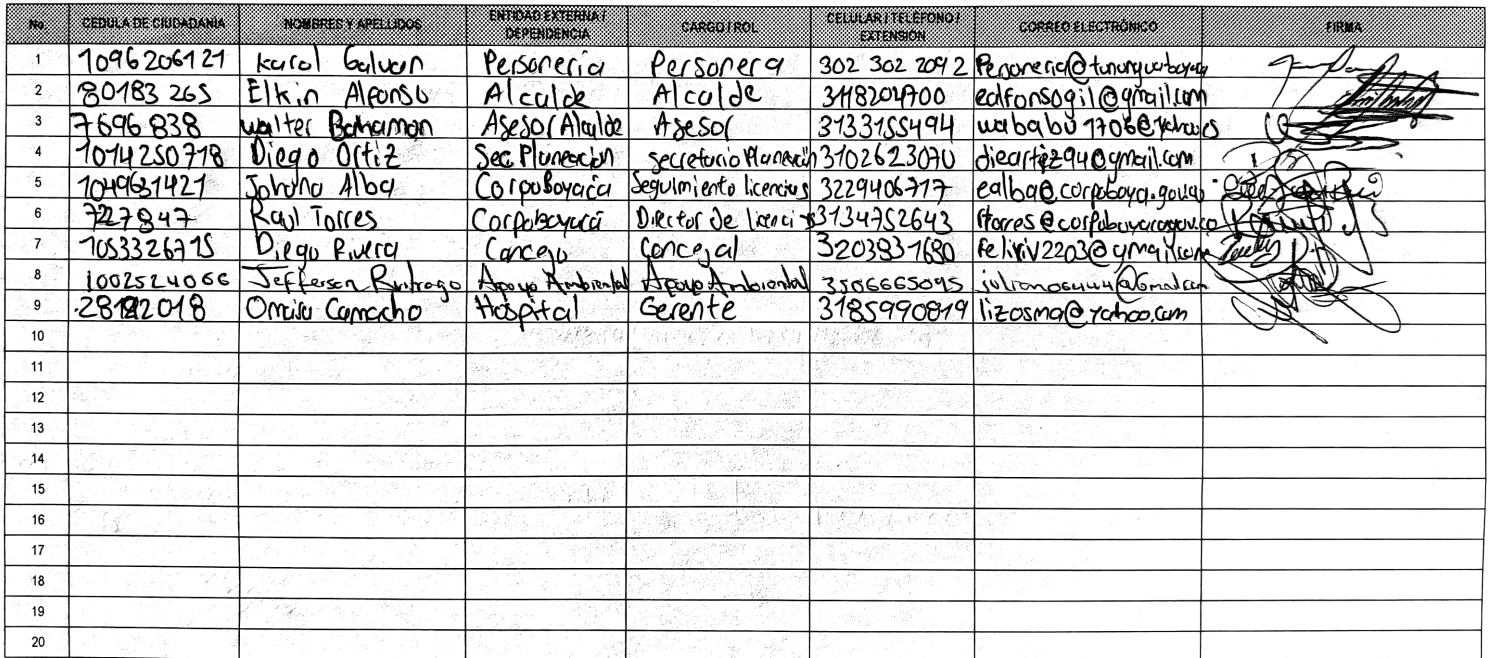 No. CEDULA DE CIUDADANIA NOMBRES Y APELLIDOS ENTIDAD EXTERNA / DEPENDENCIA CARGO / ROL CELULAR / TELÉFONO / EXTENSIÓN CORREO ELECTRÓNICO FIRMA
1 1096206121 Karol Galvan Personeria Personera 302 302 2092
2 80183265 Elkin Alfonso Alcalde Alcalde 3118204700 ealfonsogil@gmail.com
3 7696838 walter Bahamon Asesor Alcalde Asesor 3133155494
4 1014250718 Diego Ortiz Sec Planeación secretario Planeación 3102623070 dieartiz94@gmail.com
5 1049631421 Johana Alba Corpoboyaca Seguimiento licencias 3229406717
6 Raul Torres Corpoboyacá Director de 3134752643
7 1053326715 Diego Rivera Concejo Concejal 3203831680 feliriv2203@gmail.com
8 1002524066 Jefferson Buitrago Apoyo Ambiental Apoyo Ambiental 3506665095
9 Omaira Camacho Hospital Gerente 3185990819 lizosma@yahoo.com
10
11
12
13
14
15
16
17
18
19
20